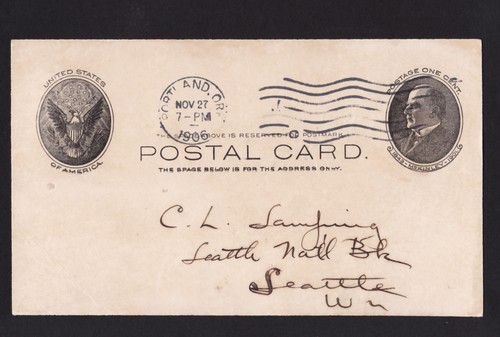 UNITED STATES
OF AMERICA.
PORTLAND, ORE.
NOV 27
7-PM
1906
POSTAGE ONE CENT.
1843-McKINLEY-1901.
THE SPACE ABOVE IS RESERVED FOR POSTMARK.
POSTAL CARD.
THE SPACE BELOW IS FOR THE ADDRESS ONLY.
C. L.
Seattle Nat'l Bk
Seattle
Wn